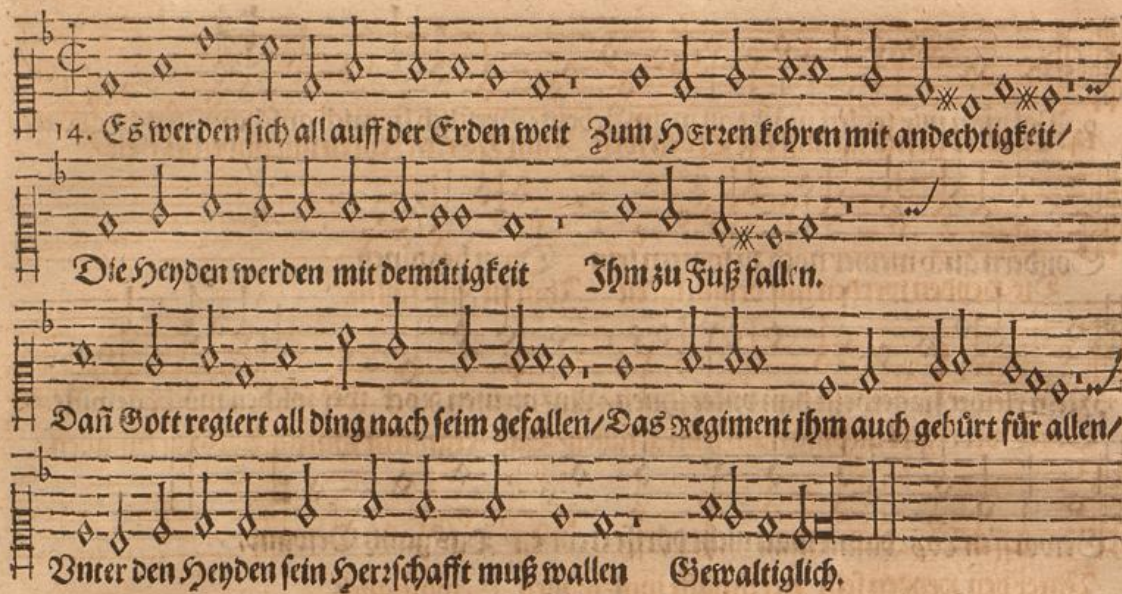 14. Es werden sich all auff der Erden weit Zum HErren kehren mit andechtigkeit/
Die Heyden werden mit demütigkeit Ihm zu Fuß fallen.
Dañ Gott regiert all ding nach seim gefallen/Das Regiment jhm auch gebürt für allen/
Vnter den Heyden sein Herrschafft muß wallen Gewaltiglich.